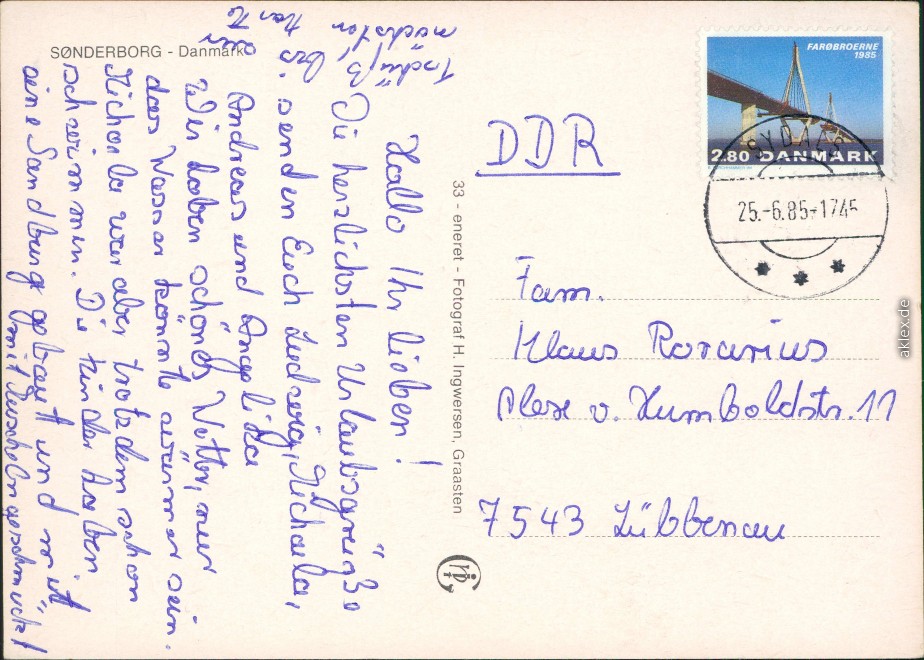 SØNDERBORG - Danmark
Hallo Ihr lieben!
Die herzlichsten Urlaubsgrüße
senden Euch Ludwig, Michaela,
Andreas und Angelika
Wir haben schönes Wetter, nur
das Wasser könnte wärmer sein.
Michaela war aber trotzdem schon
schwimmen. Die Kinder haben
eine Sandburg gebaut und mit
Muscheln geschmückt!
Tschüß
bis
zur
nächsten
Karte
33 - eneret - Fotograf H. Ingwersen, Graasten
FARØBROERNE
1985
2.80 DANMARK
25.-6.85-1745
DDR
Fam.
Klaus Rovarius
Alex v. Humboldtstr. 11
7543 Lübbenau
akpool.de